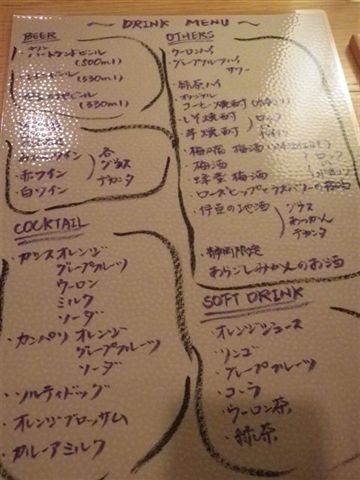 ~ DRINK MENU ~
BEER
ハートランドビール
(500ml)
(330ml)
(330ml)
赤ワイン
白ワイン
各
グラス
デカンタ
COCKTAIL
・カシスオレンジ
グレープフルーツ
ウーロン
ミルク
ソーダ
・カンパリオレンジ
グレープフルーツ
ソーダ
・ソルティドッグ
・オレンジブロッサム
・カルーアミルク
OTHERS
・ウーロンハイ
・グレープフルーツハイ
サワー
・緑茶ハイ
コーヒー焼酎
・いも焼酎
・芋焼酎
ロック
・梅酒
・蜂蜜梅酒
ロック
・伊豆の地酒
グラス
あつかん
デカンタ
・静岡限定
あらごしみかんのお酒
SOFT DRINK
・オレンジジュース
・リンゴ
・グレープフルーツ
・コーラ
・ウーロン茶
・緑茶